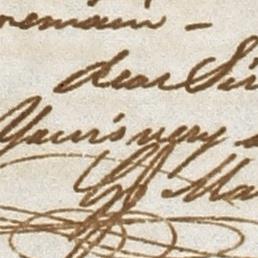 remain -
dear Sir
Your's very
Ma